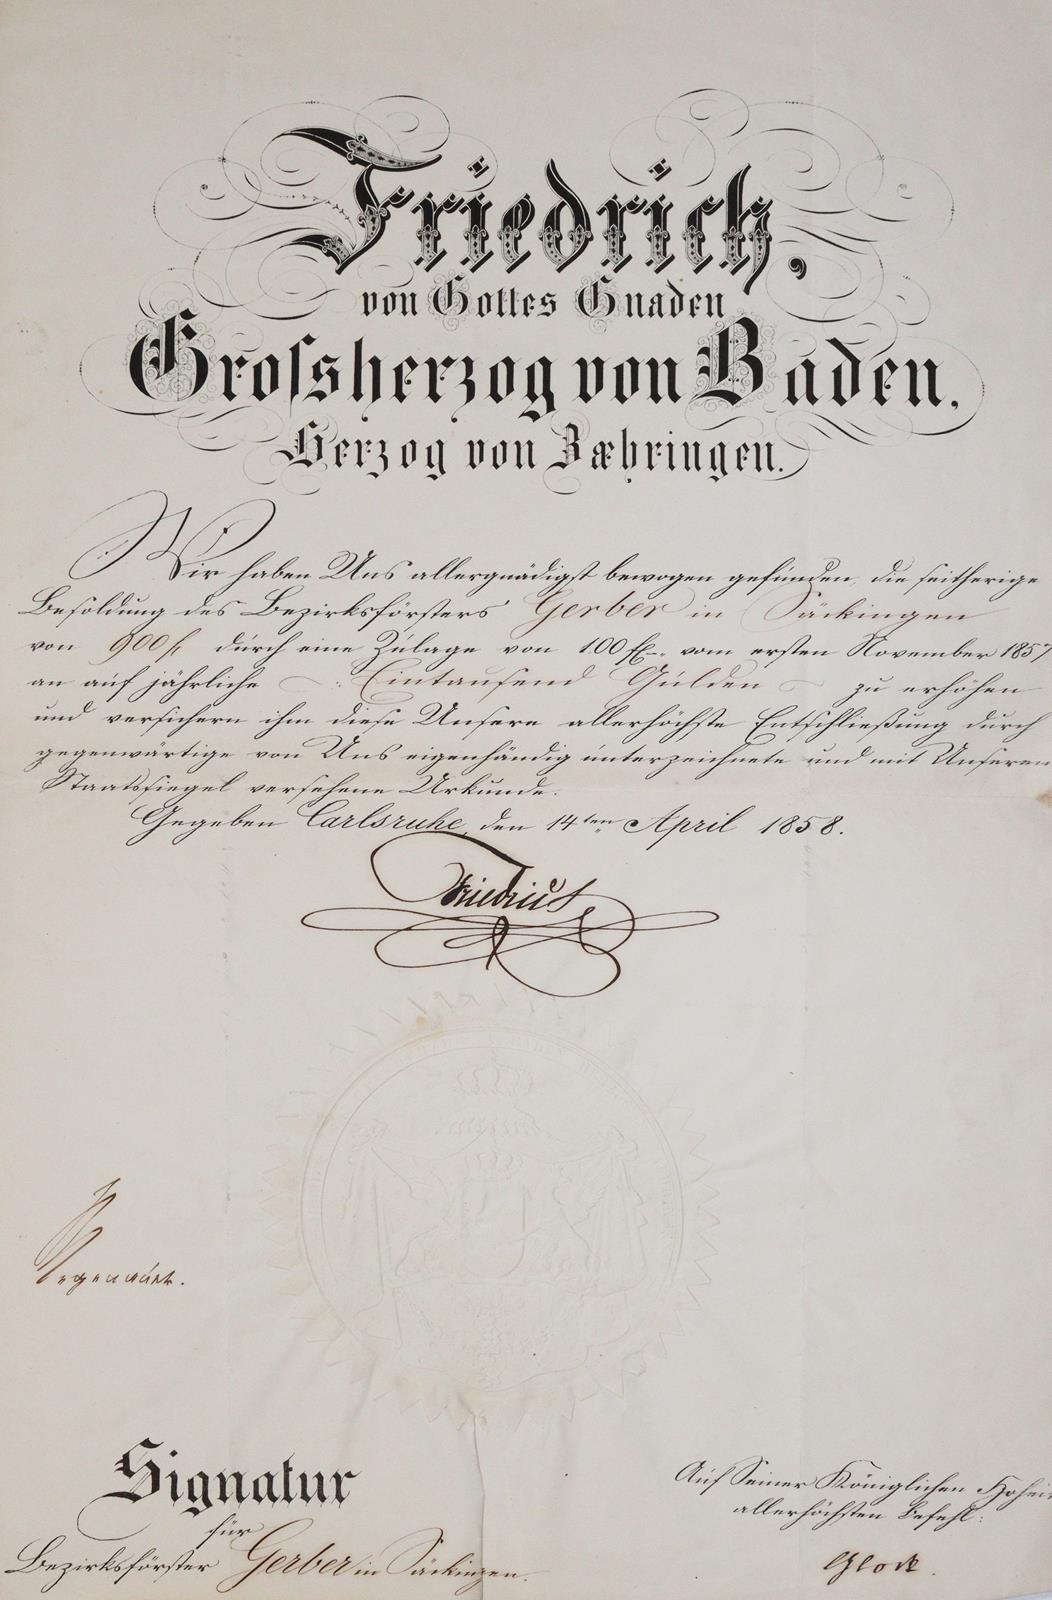 Friedrich,
von Gottes Gnaden
Grossherzog von Baden,
Herzog von Zæhringen.
Wir haben Uns allergnädigst bewogen gefunden, die seitherige
Besoldung des Bezirksförsters Gerber in Säckingen
von 900 fl. durch eine Zulage von 100 fl. vom ersten November 1857
an auf jährliche Eintausend Gulden zu erhöhen
und versichern ihm diese Unsere allerhöchste Entschließung durch
gegenwärtige von Uns eigenhändig unterzeichnete und mit Unserem
Staatssiegel versehene Urkunde.
Gegeben Carlsruhe, den 14ten April 1858.
Friedrich
Signatur
für
Bezirksförster Gerber in Säckingen.
Auf Seiner Königlichen Hoheit
allerhöchsten Befehl: